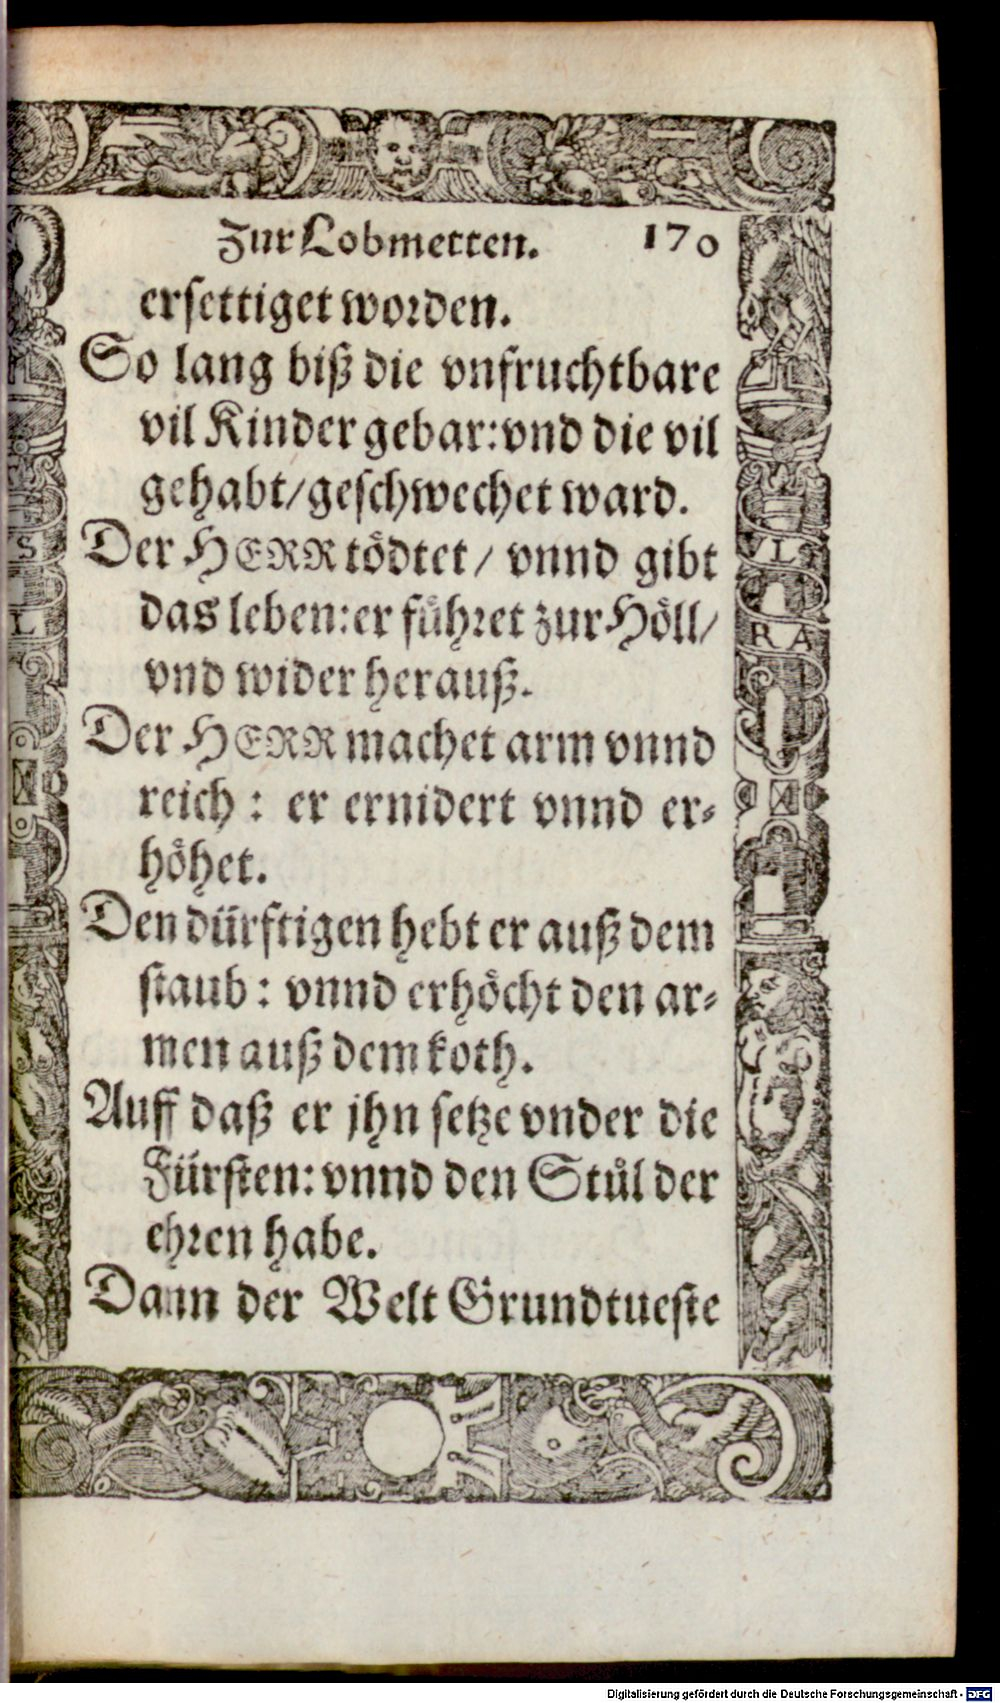 Zur Lobmetten. 170
ersettiget worden.
So lang biß die vnfruchtbare
vil Kinder gebar: vnd die vil
gehabt/ geschwechet ward.
Der HERR tödtet/ vnnd gibt
das leben: er führet zur Höll/
vnd wider herauß.
Der HERR machet arm vnnd
reich: er ernidert vnnd er-
höhet.
Den dürftigen hebt er auß dem
staub: vnnd erhöcht den ar-
men auß dem koth.
Auff daß er jhn setze vnder die
Fürsten: vnnd den Stůl der
ehren habe.
Dann der Welt Grundtueste
S
L
L
R A
Digitalisierung gefördert durch die Deutsche Forschungsgemeinschaft - DFG